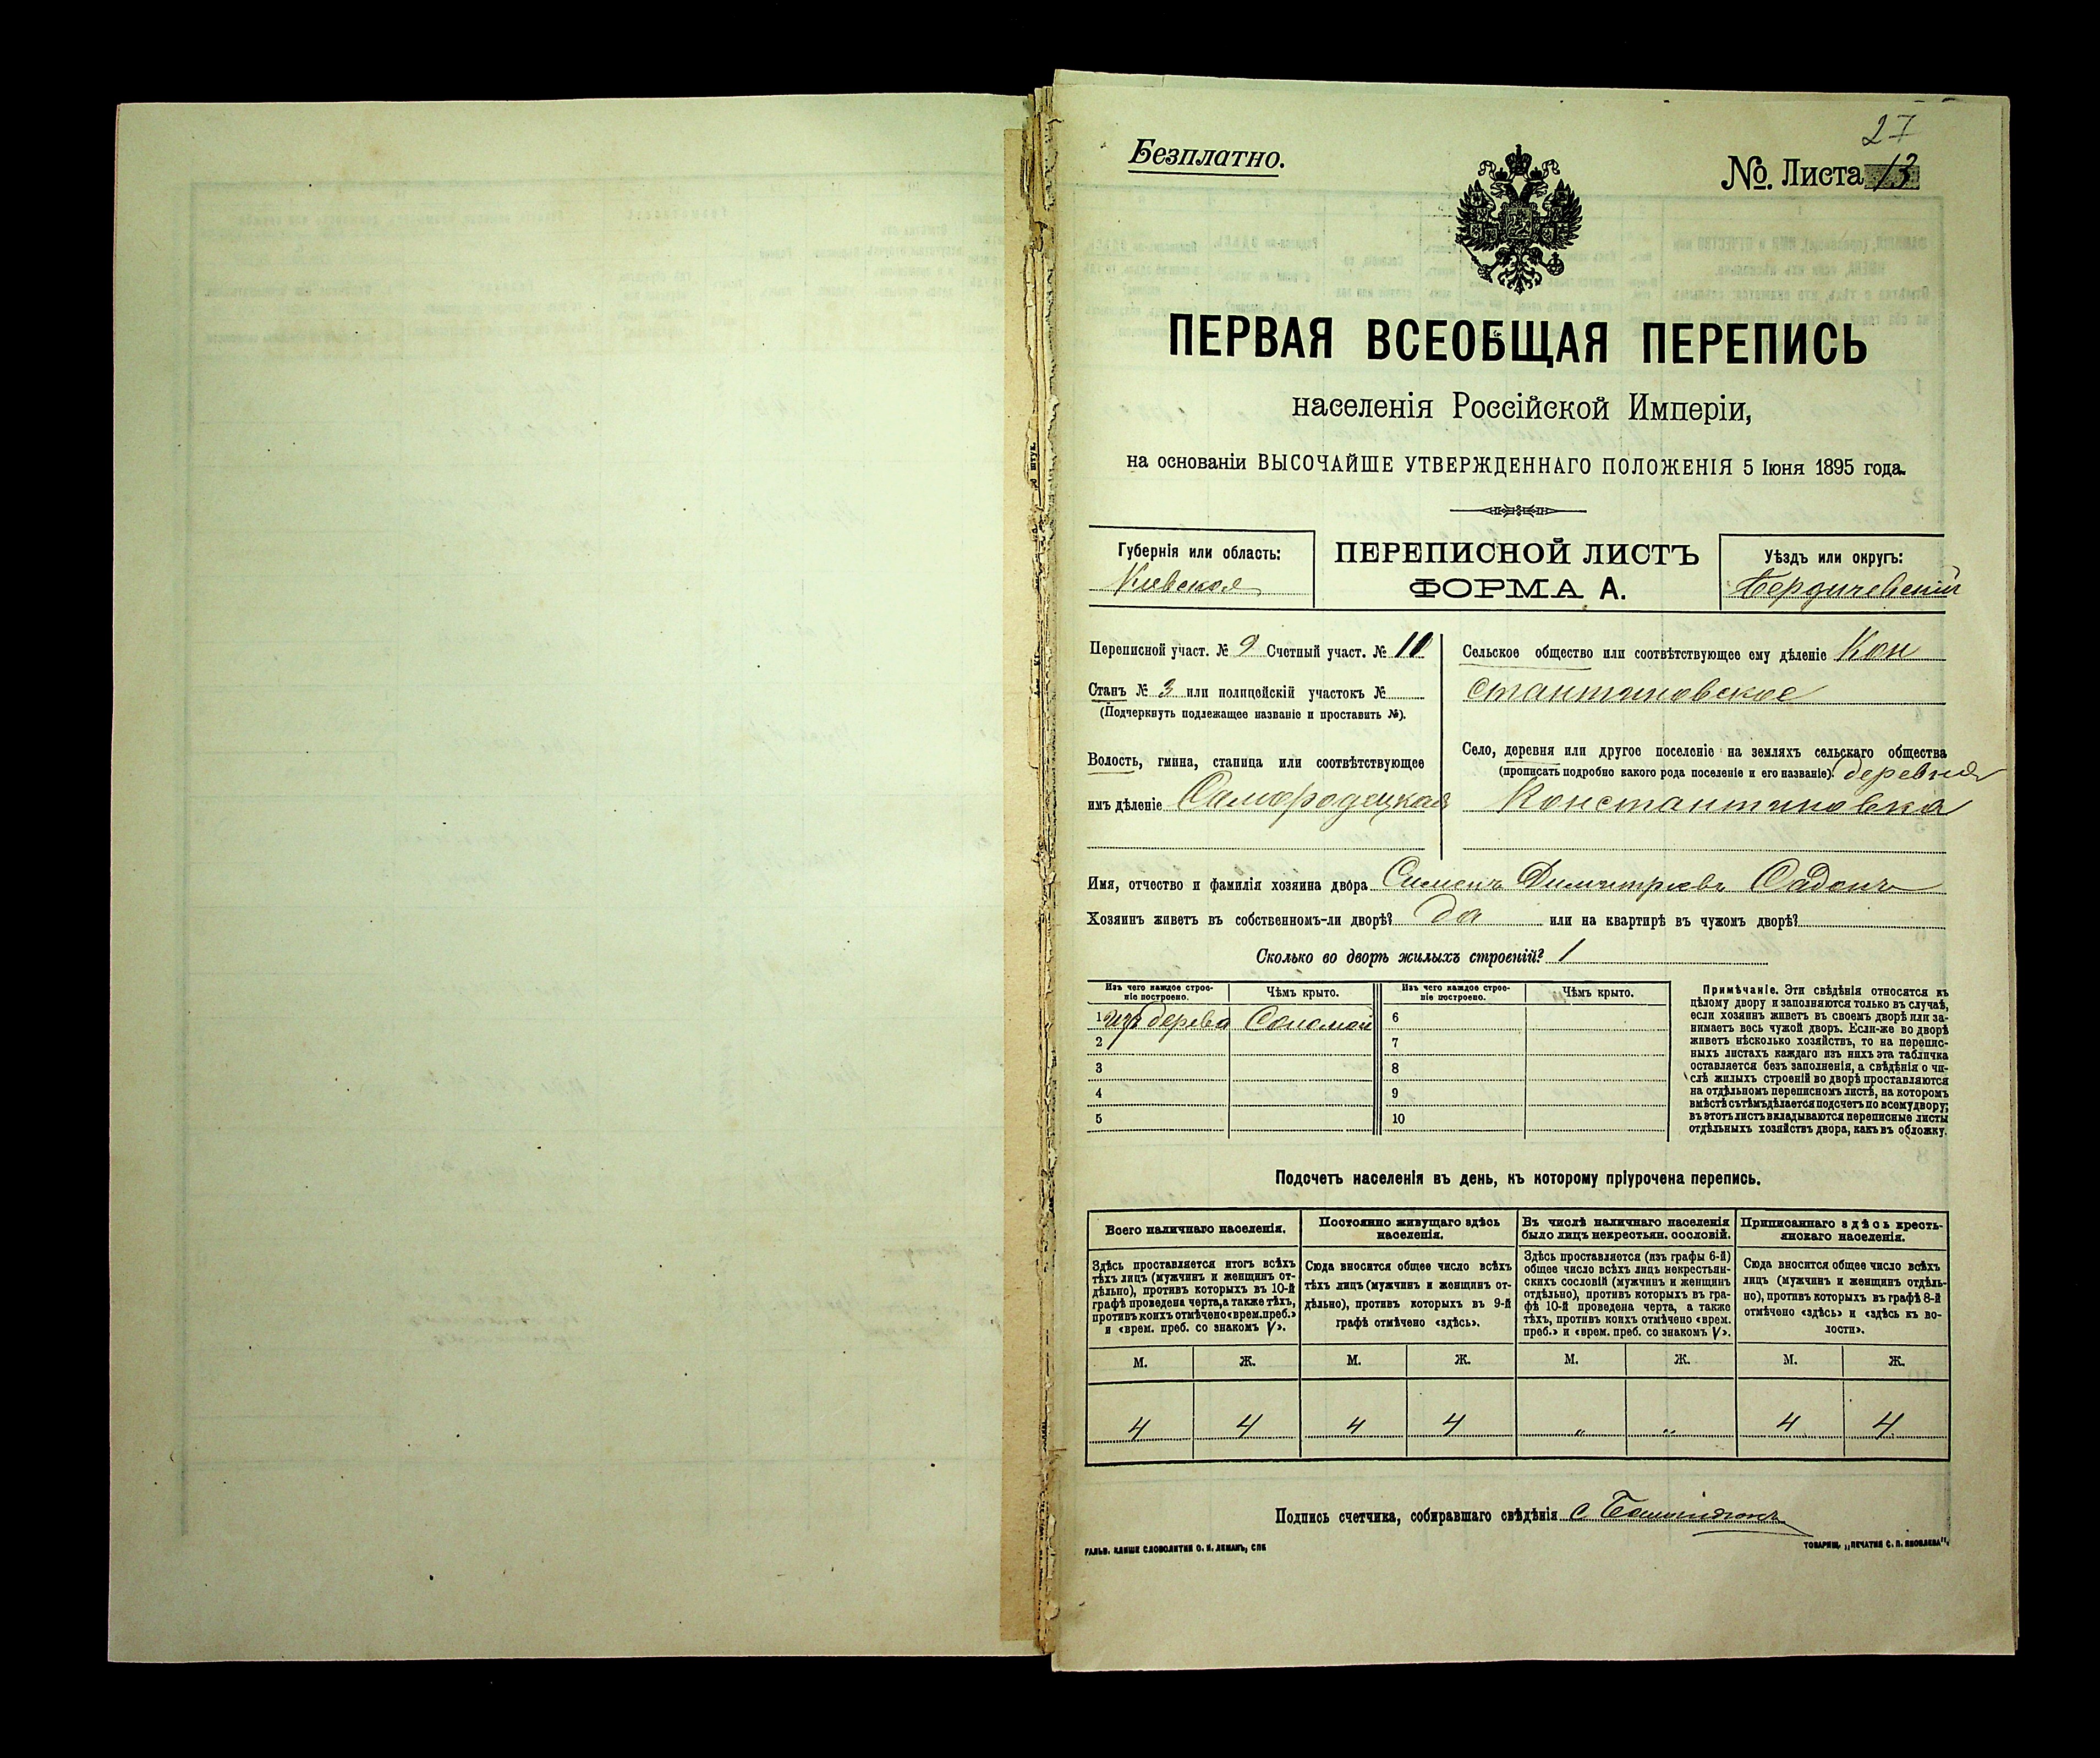 27
Безплатно.
№. Листа 13
ПЕРВАЯ ВСЕОБЩАЯ ПЕРЕПИСЬ
населенія Россійской Имперіи,
на основаніи ВЫСОЧАЙШЕ УТВЕРЖДЕННАГО ПОЛОЖЕНІЯ 5 Іюня 1895 года.
Губернія или область:
Кіевская
ПЕРЕПИСНОЙ ЛИСТЪ
ФОРМА А.
Уѣздъ или округъ:
Бердичевскій
Переписной участ. № 9 Счетный участ. № 10
Станъ № 3 или полицейскій участокъ №
(Подчеркнуть подлежащее названіе и проставить №).
Волость, гмина, станица или соотвѣтствующее
имъ дѣленіе Самородецкая
Сельское общество или соотвѣтствующее ему дѣленіе Кон
стантиновское
Село, деревня или другое поселеніе на земляхъ сельскаго общества
(прописать подробно какого рода поселеніе и его названіе): деревня
Константиновка
Имя, отчество и фамилія хозяина двора Симонъ Димитріевъ Садонъ
Хозяинъ живетъ въ собственномъ-ли дворѣ? да или на квартирѣ въ чужомъ дворѣ?
Сколько во дворѣ жилыхъ строеній? 1
Изъ чего каждое строеніе построено. Чѣмъ крыто. Изъ чего каждое строеніе построено. Чѣмъ крыто.
1 изъ дерева Соломой 6
2 7
3 8
4 9
5 10
Примѣчаніе. Эти свѣдѣнія относятся къ
цѣлому двору и заполняются только въ случаѣ,
если хозяинъ живетъ въ своемъ дворѣ или за-
нимаетъ весь чужой дворъ. Если-же во дворѣ
живетъ нѣсколько хозяйствъ, то на перепис-
ныхъ листахъ каждаго изъ нихъ эта табличка
оставляется безъ заполненія, а свѣдѣнія о чи-
слѣ жилыхъ строеній во дворѣ проставляются
на отдѣльномъ переписномъ листѣ, на которомъ
вмѣстѣ съ тѣмъ дѣлается подсчетъ по всему двору;
въ этотъ листъ вкладываются переписные листы
отдѣльныхъ хозяйствъ двора, какъ въ обложку.
Подсчетъ населенія въ день, къ которому пріурочена перепись.
Всего наличнаго населенія.
Здѣсь проставляется итогъ всѣхъ
тѣхъ лицъ (мужчинъ и женщинъ от-
дѣльно), противъ которыхъ въ 10-й
графѣ проведена черта, а также тѣхъ,
противъ коихъ отмѣчено «врем. преб.»
и «врем. преб. со знакомъ V».
Постоянно живущаго здѣсь
населенія.
Сюда вносится общее число всѣхъ
тѣхъ лицъ (мужчинъ и женщинъ от-
дѣльно), противъ которыхъ въ 9-й
графѣ отмѣчено «здѣсь».
Въ числѣ наличнаго населенія
было лицъ некрестьян. сословій.
Здѣсь проставляется (изъ графы 6-й)
общее число всѣхъ лицъ некрестьян-
скихъ сословій (мужчинъ и женщинъ
отдѣльно), противъ которыхъ въ гра-
фѣ 10-й проведена черта, а также
тѣхъ, противъ коихъ отмѣчено «врем.
преб.» и «врем. преб. со знакомъ V».
Приписаннаго здѣсь кресть-
янскаго населенія.
Сюда вносится общее число всѣхъ
лицъ (мужчинъ и женщинъ отдѣль-
но), противъ которыхъ въ графѣ 8-й
отмѣчено «здѣсь» и «здѣсь къ во-
лости».
М. Ж. М. Ж. М. Ж. М. Ж.
4 4 4 4 " " 4 4
Подпись счетчика, собиравшаго свѣдѣнія С
ГАЛЬВ. КЛИШЕ СЛОВОЛИТНИ О. И. ЛЕМАНЪ, СПБ
ТОВАРИЩ. „ПЕЧАТНЯ С. П. ЯКОВЛЕВА".